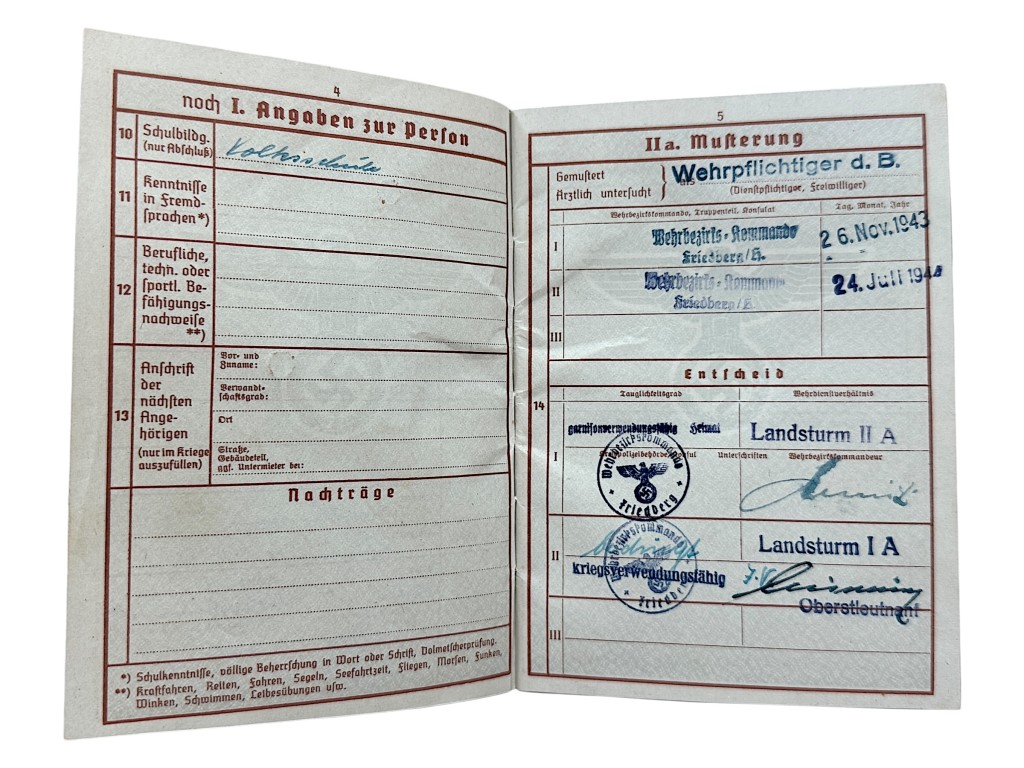 4
noch I. Angaben zur Person
10 Schulbildg.
(nur Abschluß)
Volksschule
11 Kenntnisse
in Fremd-
sprachen*)
12 Berufliche,
techn. oder
sportl. Be-
fähigungs-
nachweise
**)
13 Anschrift
der
nächsten
Ange-
hörigen
(nur im Kriege
auszufüllen)
Vor- und
Zuname:
Verwandt-
schaftsgrad:
Ort
Straße,
Gebäudeteil,
ggf. Untermieter bei:
Nachträge
*) Schulkenntnisse, völlige Beherrschung in Wort oder Schrift, Dolmetscherprüfung.
**) Kraftfahren, Reiten, Fahren, Segeln, Seefahrtzeit, Fliegen, Morsen, Funken,
Winken, Schwimmen, Leibesübungen usw.
5
IIa. Musterung
Gemustert
Ärztlich untersucht
als
Wehrpflichtiger d. B.
(Dienstpflichtiger, Freiwilliger)
Wehrbezirkskommando, Truppenteil, Konsulat
Tag, Monat, Jahr
I Wehrbezirks-Kommando
Friedberg/H.
26. Nov. 1943
II Wehrbezirks-Kommando
Friedberg/H.
24. Juli 1944
III
Entscheid
14
Tauglichkeitsgrad
Wehrdienstverhältnis
garnisonverwendungsfähig Heimat
Landsturm II A
I
Unterschriften
Wehrbezirkskommandeur
Wehrbezirkskommando
Friedberg
II
Landsturm I A
Wehrbezirkskommando
Friedberg
kriegsverwendungsfähig
Oberstleutnant
III